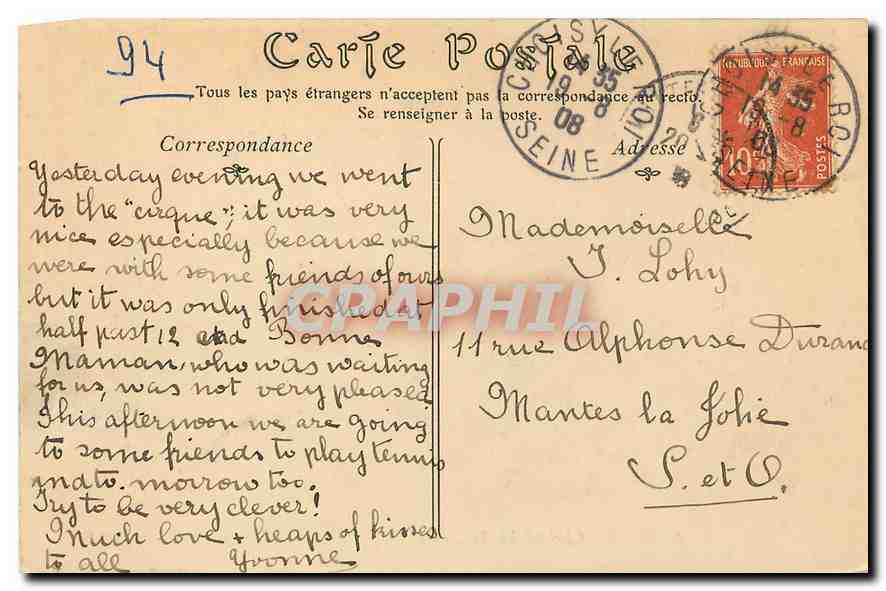 94
Carte Postale
Tous les pays étrangers n'acceptent pas la correspondance au recto.
Se renseigner à la poste.
Correspondance
Adresse
Yesterday evening we went
to the "cirque"; it was very
nice especially because we
were with some friends of ours
but it was only finished at
half past 12 and Bonne
Maman, who was waiting
for us, was not very pleased
This afternoon we are going
to some friends to play tennis
and to. morrow too.
Try to be very clever!
Much love + heaps of kisses
to all Yvonne
Mademoiselle
J. Lohy
11 rue Alphonse Durand
Mantes la Jolie
S. et O.
CHOISY LE ROI
14 35
9 - 8
08
SEINE
REPUBLIQUE FRANÇAISE
10
POSTES
CHOISY LE ROI
14 35
SEINE
CPAPHIL